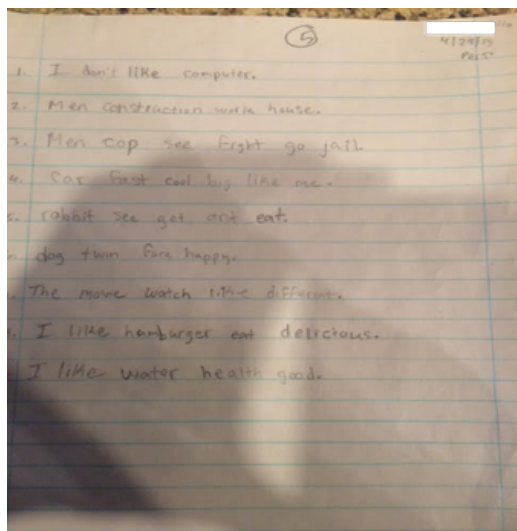 5
4/29/15
Per 5
1. I don't like computer.
2. Men construction work house.
3. Men cop see fight go jail
4. Car fast cool big like me.
5. rabbit see get ant eat.
dog twin face happy.
The movie watch like different.
I like hamburger eat delicious.
I like water health good.